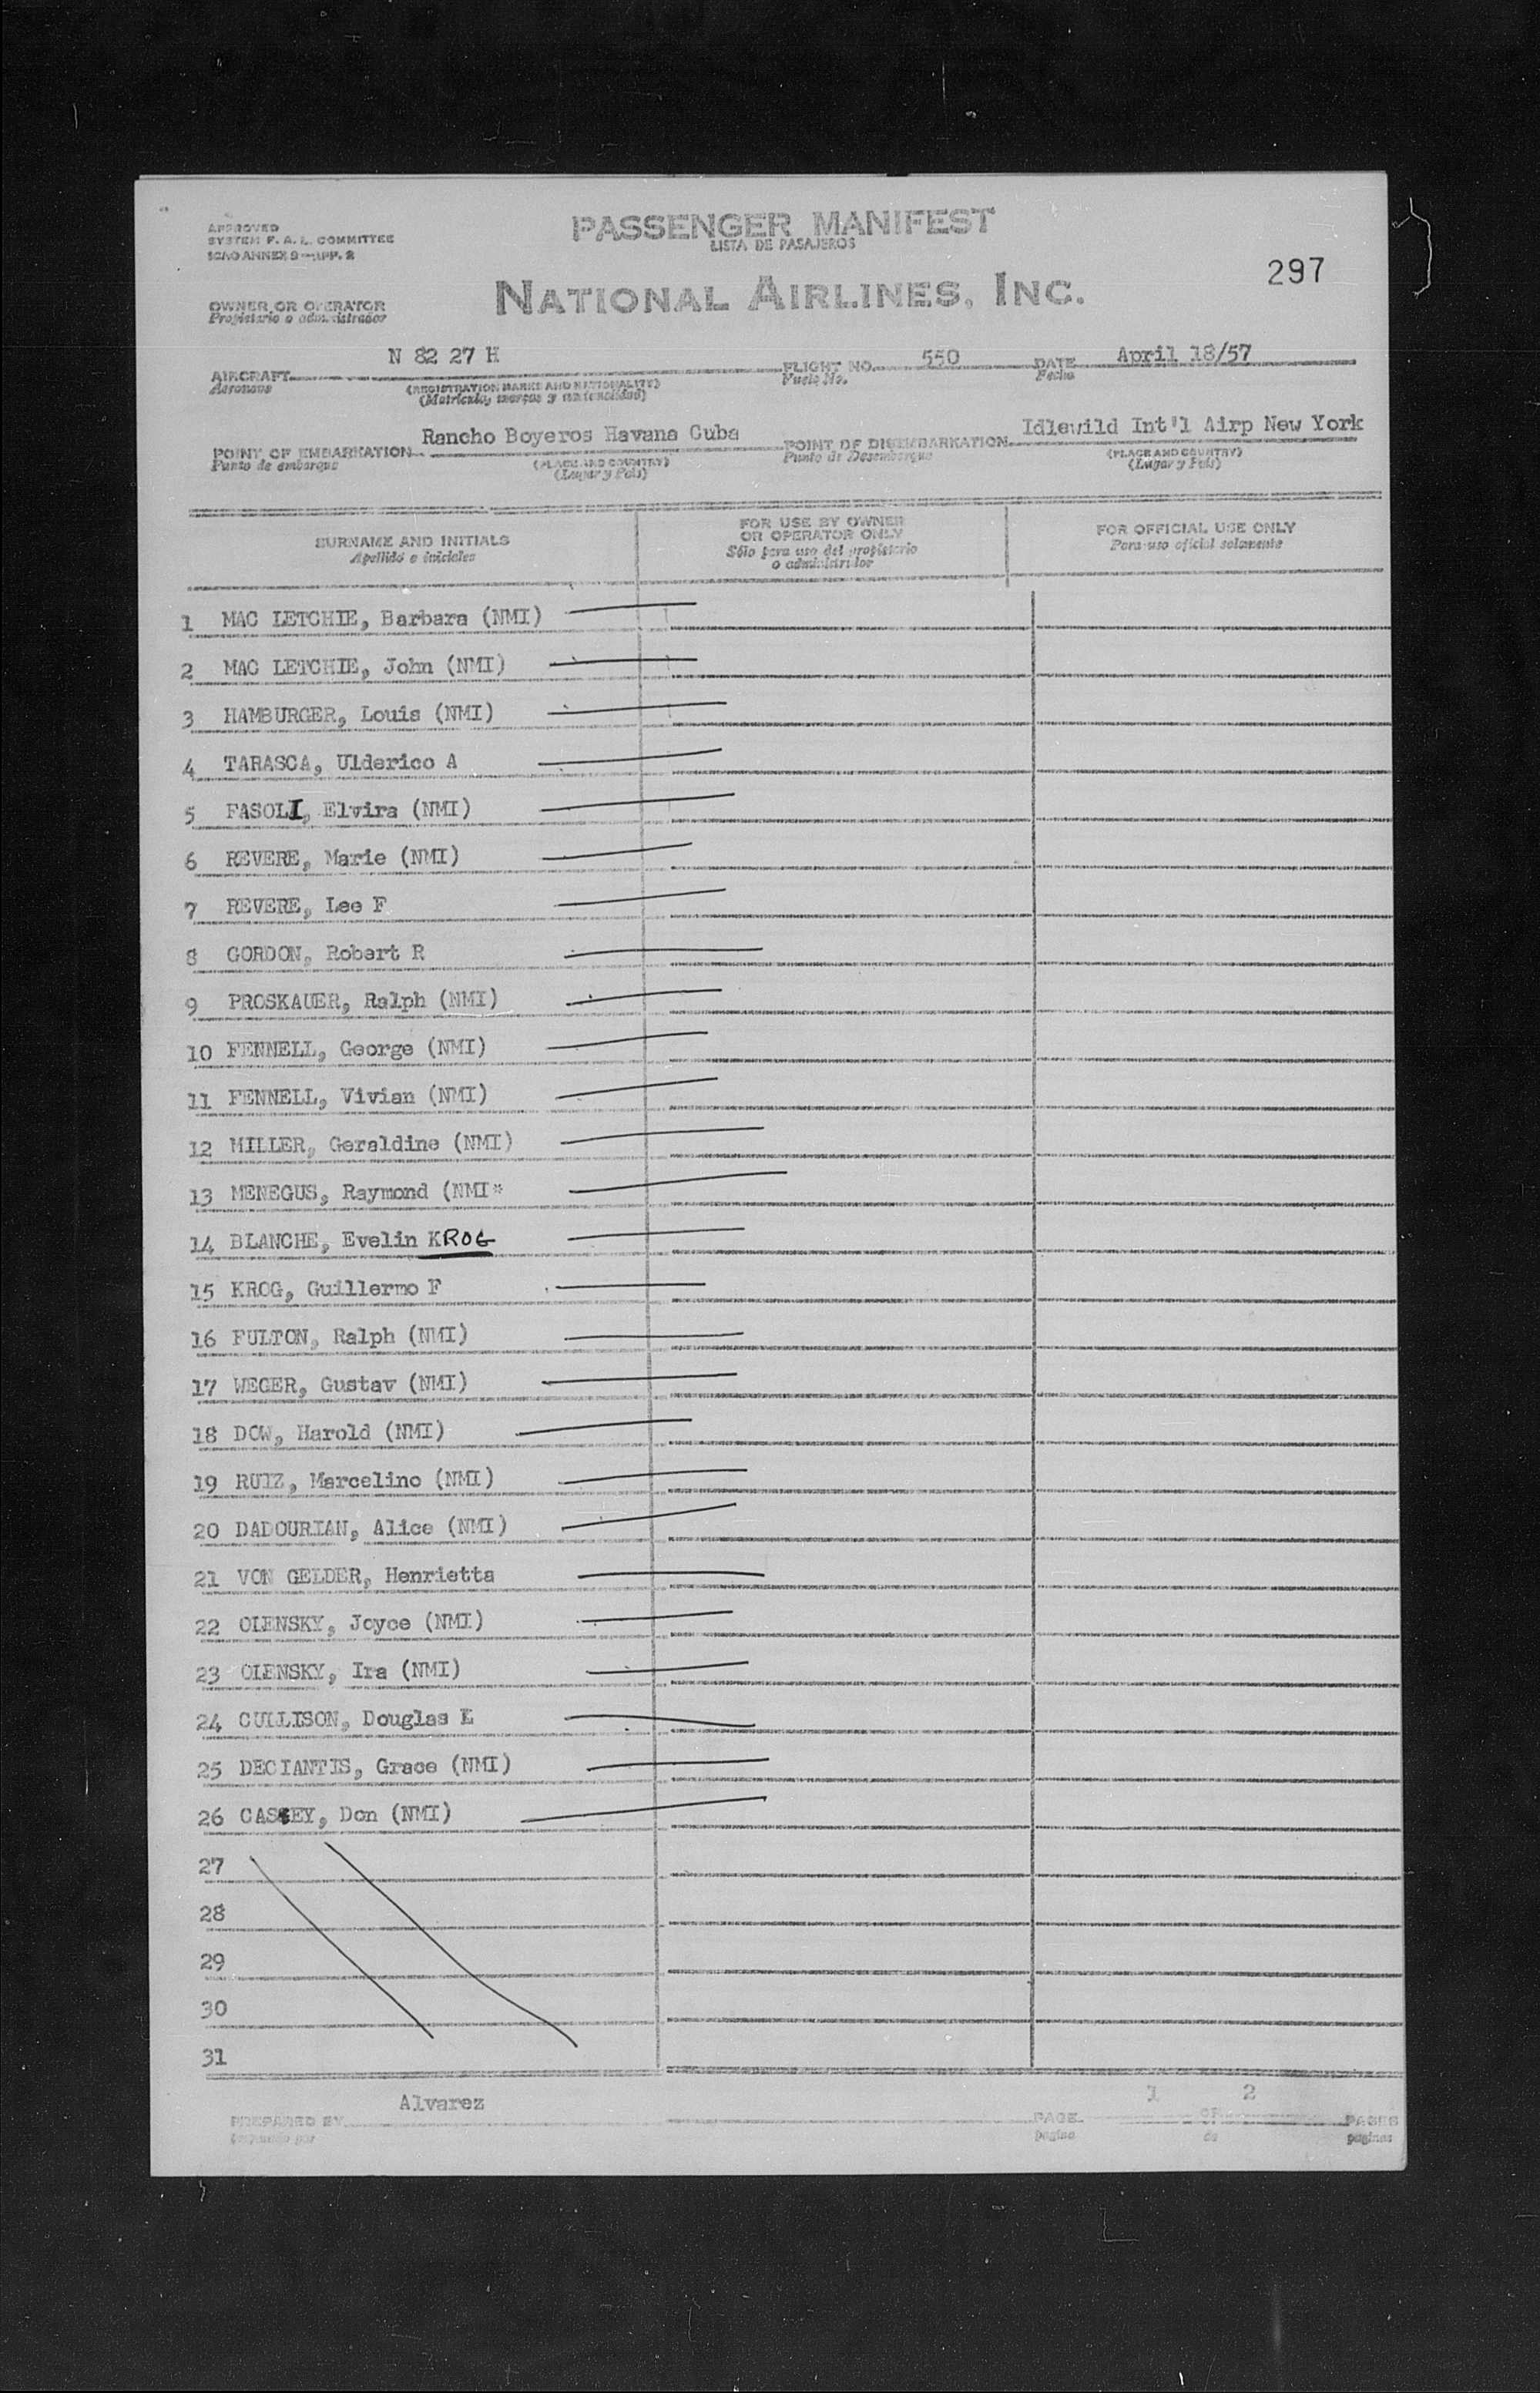 APPROVED
SYSTEM F. A. L. COMMITTEE
ICAO ANNEX 9—APP. 2
PASSENGER MANIFEST
LISTA DE PASAJEROS
297
NATIONAL AIRLINES, INC.
OWNER OR OPERATOR
Propietario o administrador
N 82 27 H 550 April 18/57
AIRCRAFT FLIGHT NO. DATE
Aeronave (REGISTRATION MARKS AND NATIONALITY) Vuelo No. Fecha
(Matricula, marcas y nacionalidad)
Rancho Boyeros Havana Cuba Idlewild Int'l Airp New York
POINT OF EMBARKATION POINT OF DISEMBARKATION
Punto de embarque (PLACE AND COUNTRY) Punto de Desembarque (PLACE AND COUNTRY)
(Lugar y País) (Lugar y País)
SURNAME AND INITIALS FOR USE BY OWNER OR OPERATOR ONLY FOR OFFICIAL USE ONLY
Apellido e iniciales Sólo para uso del propietario o administrador Para uso oficial solamente
1 MAC LETCHIE, Barbara (NMI)
2 MAC LETCHIE, John (NMI)
3 HAMBURGER, Louis (NMI)
4 TARASCA, Ulderico A
5 FASOLI, Elvira (NMI)
6 REVERE, Marie (NMI)
7 REVERE, Lee F
8 GORDON, Robert R
9 PROSKAUER, Ralph (NMI)
10 FENNELL, George (NMI)
11 FENNELL, Vivian (NMI)
12 MILLER, Geraldine (NMI)
13 MENEGUS, Raymond (NMI*
14 BLANCHE, Evelin KROG
15 KROG, Guillermo F
16 FULTON, Ralph (NMI)
17 WEGER, Gustav (NMI)
18 DOW, Harold (NMI)
19 RUIZ, Marcelino (NMI)
20 DADOURIAN, Alice (NMI)
21 VON GELDER, Henrietta
22 OLENSKY, Joyce (NMI)
23 OLENSKY, Ira (NMI)
24 CULLISON, Douglas L
25 DECIANTIS, Grace (NMI)
26 Don (NMI)
27
28
29
30
31
Alvarez 1 2
PREPARED BY PAGE OF PAGES
pagina de paginas